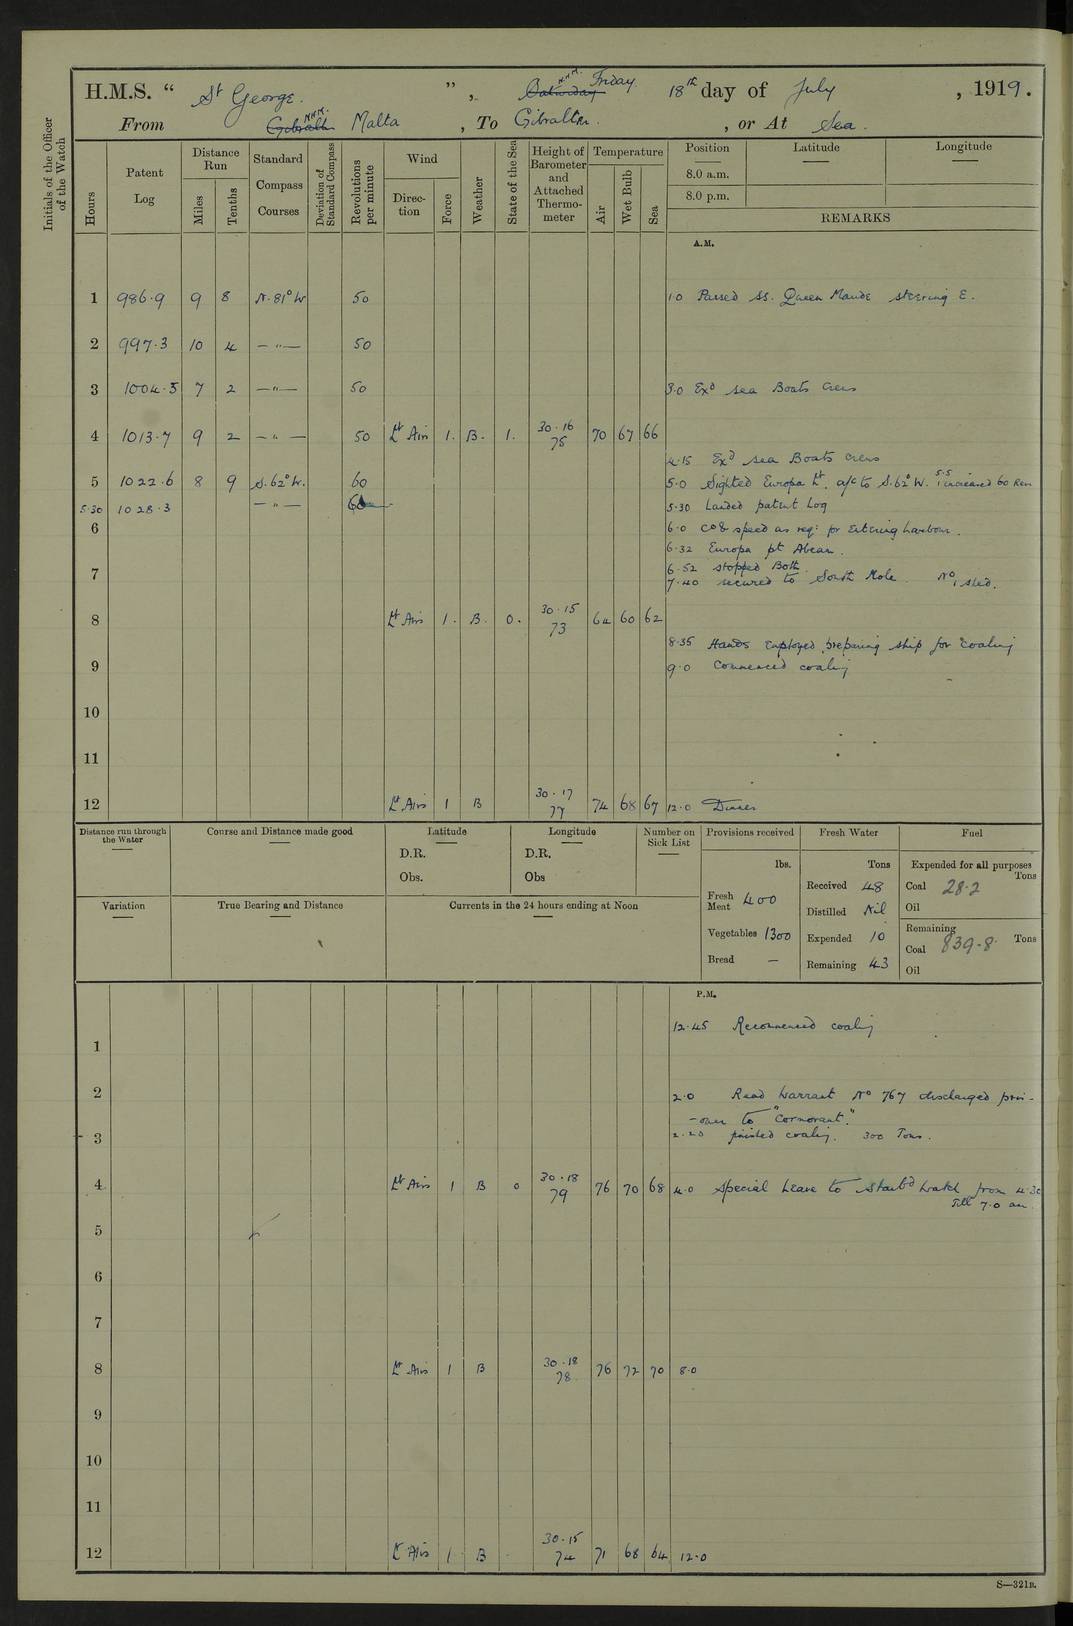 H.M.S. “ St George. ” , Saturday N.N.M. Friday 18th day of July , 1919.
From Gibraltr N.N.M. Malta , To Gibraltr. , or At Sea.
Initials of the Officer of the Watch
Hours
Patent Log
Distance Run
Miles
Tenths
Standard Compass Courses
Deviation of Standard Compass
Revolutions per minute
Wind
Direction
Force
Weather
State of the Sea
Height of Barometer and Attached Thermometer
Temperature
Air
Wet Bulb
Sea
Position
Latitude
Longitude
8.0 a.m.
8.0 p.m.
REMARKS
A.M.
1 986.9 9 8 N.81°W 50 1.0 Passed ss. Queen Maude steering E.
2 997.3 10 4 — " — 50
3 1004.5 7 2 — " — 50 3.0 Exd sea Boats crews
4 1013.7 9 2 — " — 50 Lt Airs 1. B. 1. 30.16 75 70 67 66
4.15 Exd sea Boats crews
5 1022.6 8 9 S.62°W. 60 5.0 Sighted Europa Lt. a/c to S.62°W. 5.5 increased 60 Rev
5.30 1028.3 — " — 5.30 Landed patent Log
6 6.0 Co & speed as req: for entering harbour.
6.32 Europa pt Abeam.
6.52 stopped Both.
7 7.40 secured to South Mole. No 1 shed.
8 Lt Airs 1. B. 0. 30.15 73 64 60 62
8.35 Hands employed preparing ship for coaling
9 9.0 Commenced coaling
10
11
12 Lt Airs 1 B 30.17 77 74 68 67 12.0 Dinner
Distance run through the Water
Course and Distance made good
Latitude
D.R.
Obs.
Longitude
D.R.
Obs
Number on Sick List
Provisions received
lbs.
Fresh Meat 400
Vegetables 1300
Bread —
Fresh Water
Tons
Received 48
Distilled Nil
Expended 10
Remaining 43
Fuel
Expended for all purposes
Tons
Coal 28.2
Oil
Remaining
Coal 839.8 Tons
Oil
Variation
True Bearing and Distance
Currents in the 24 hours ending at Noon
P.M.
12.45 Recommenced coaling
1
2 2.0 Read Warrant No 767 discharged pris-
-oner to "Cormorant."
3 2.20 finished coaling. 300 Tons.
4 Lt Airs 1 B 0 30.18 79 76 70 68 4.0 Special Leave to Starbd Watch from 4.30
till 7.0 am.
5
6
7
8 Lt Airs 1 B 30.18 78 76 72 70 8.0
9
10
11
12 Lt Airs 1 B 30.15 74 71 68 64 12.0
S—321B.